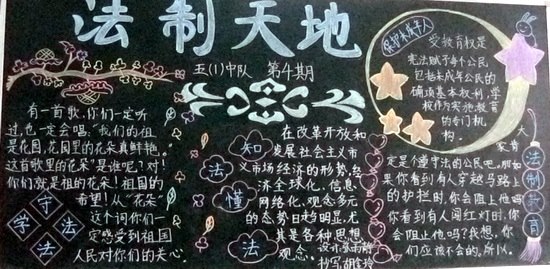 法制天地
五(1)中队 第4期
有一首歌,你们一定听
过,也一定会唱:“我们的祖
国是花园,花园里的花朵真鲜艳。”
这首歌里的“花朵”是谁呢?对!
你们就是祖国的花朵!祖国的
希望!从“花朵”
这个词你们一
定感受到祖国
人民对你们的关心。
学法
守法
知法懂法
在改革开放和
发展社会主义市
场经济的形势,经
济全球化、信息
网络化、观念多元
的态势日趋明显,尤
其是各种思想
观念。
抄写
保护未成年人
受教育权是
宪法赋予每个公民,
包括未成年公民的
一项基本权利,学
校作为实施教育
的专门机
构。
法制教育
大
家肯
定是个懂守法的公民吧。那如
果你看到有人穿越马路上
的护栏时,你会阻止他吗?当
你看到有人闯红灯时,你
会阻止他吗?我想,你
们应该不会的。所以